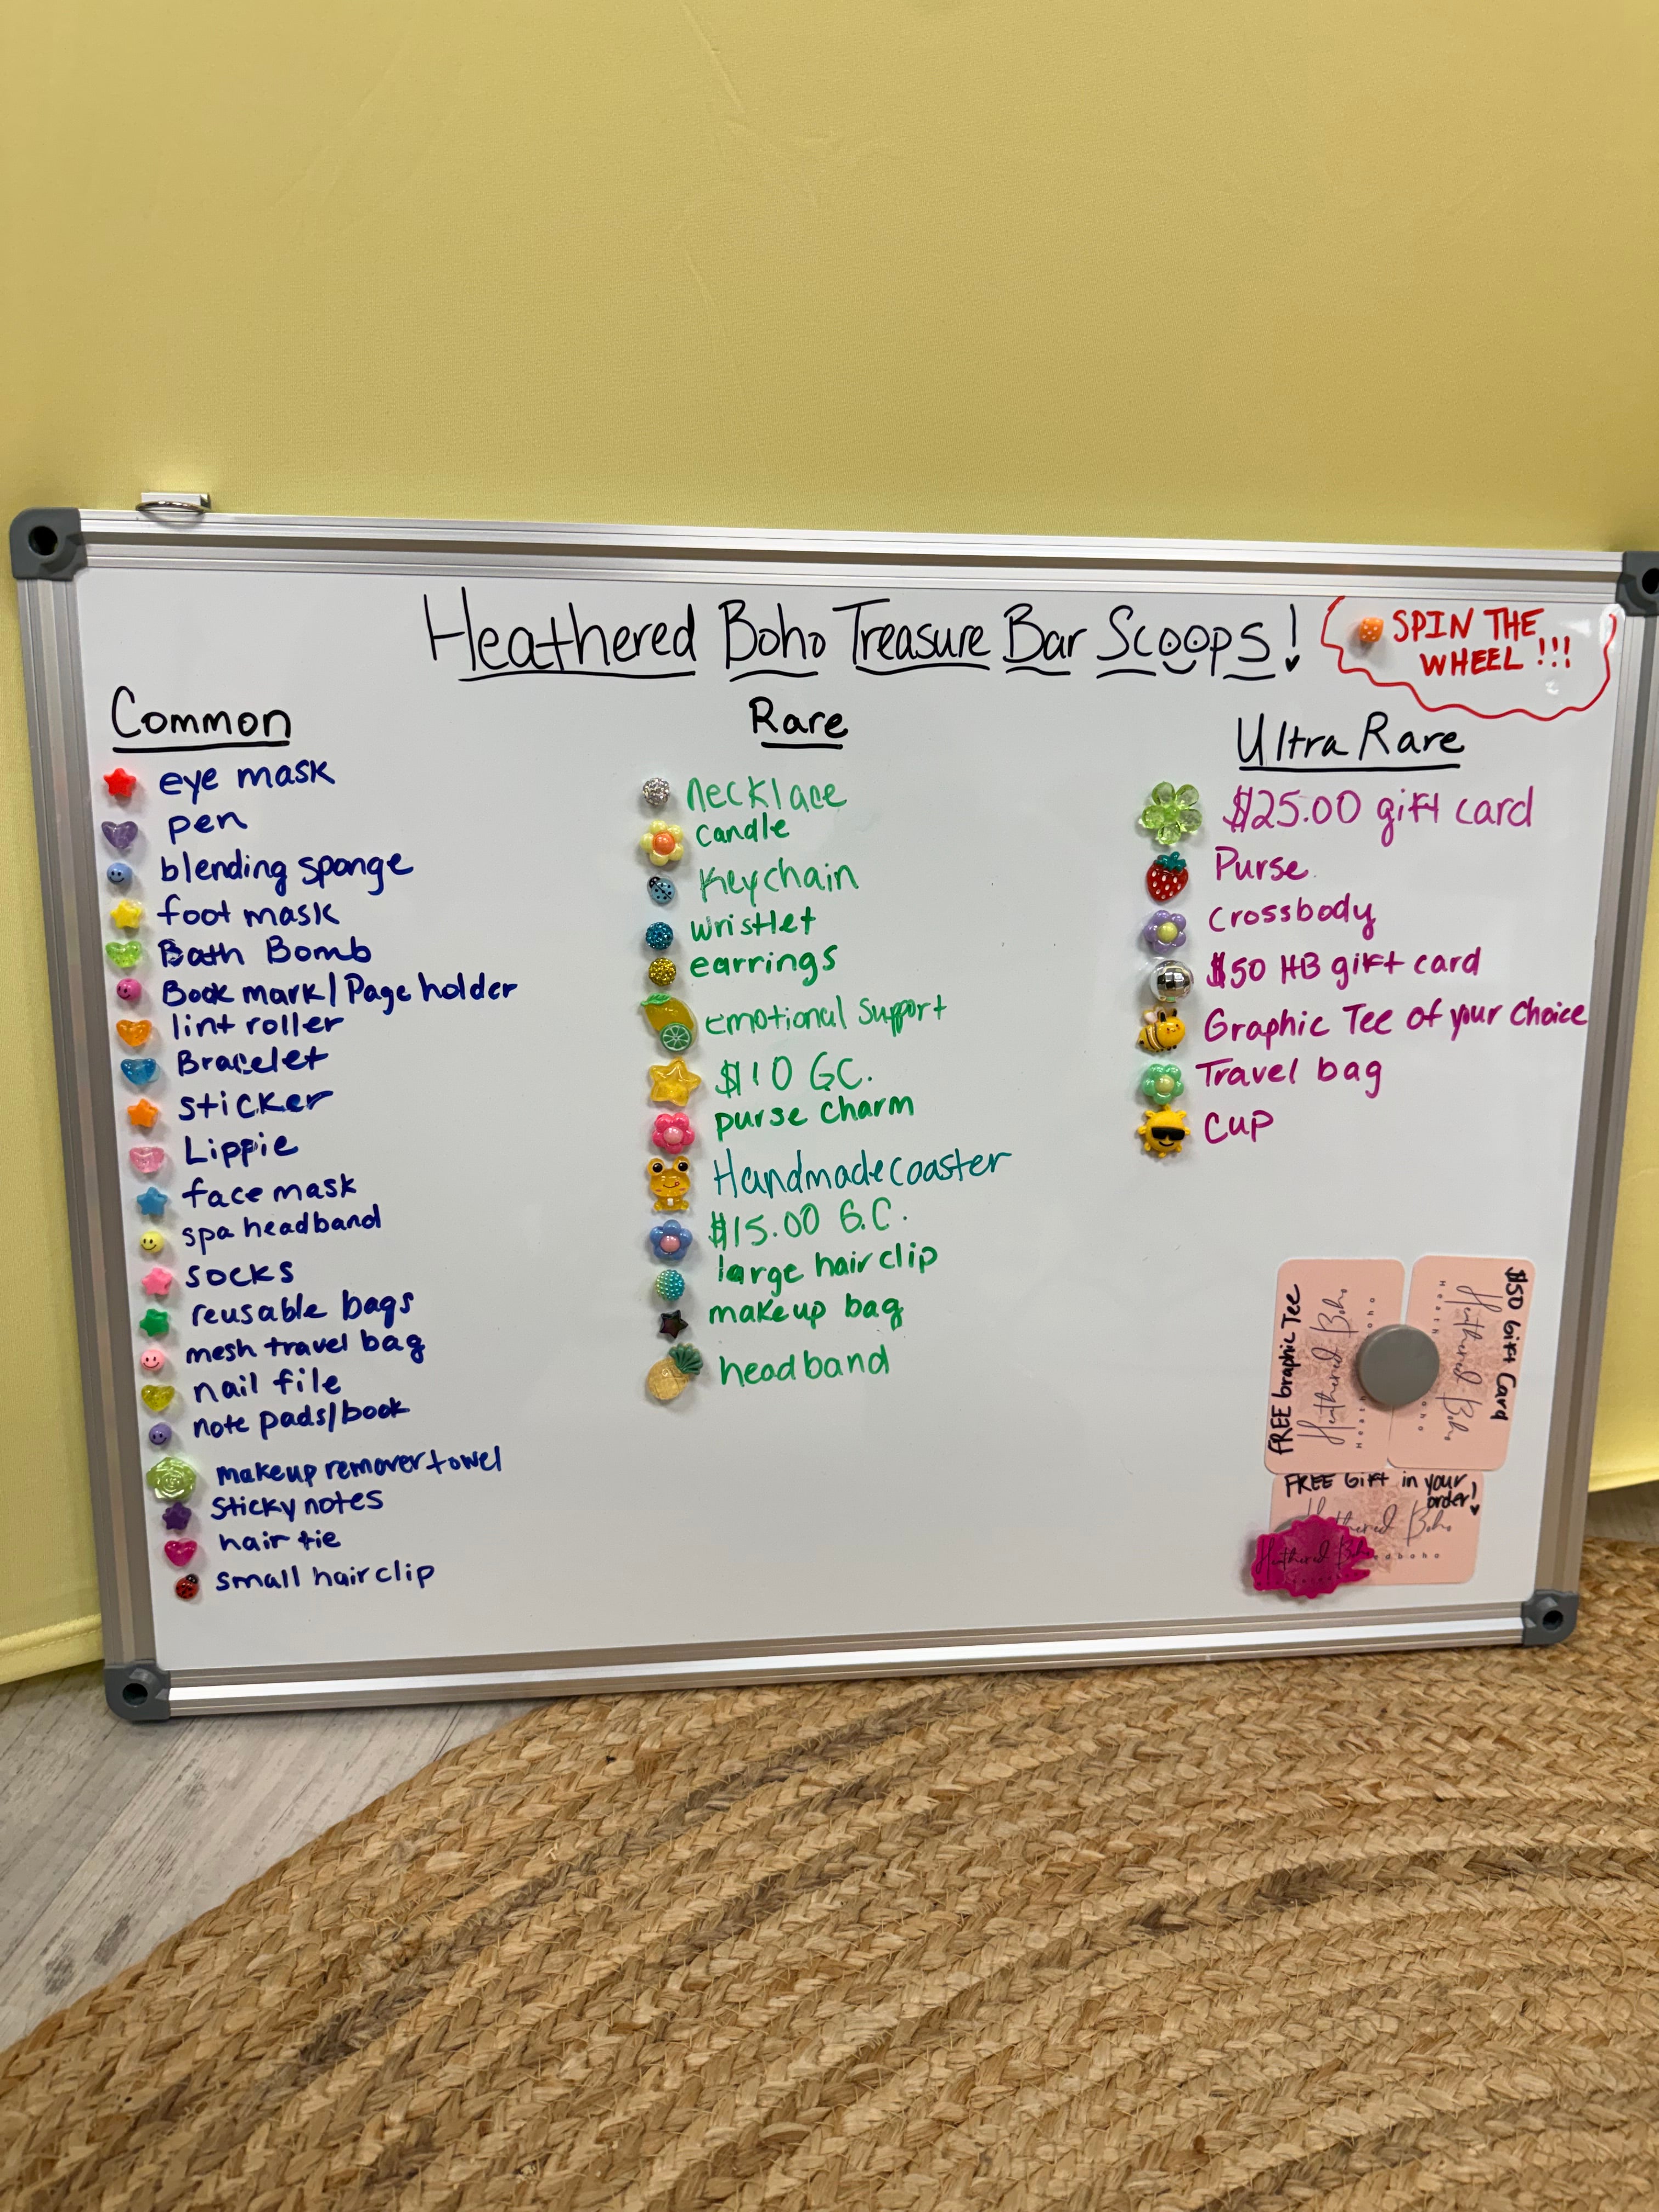 Heathered Boho Treasure Bar Scoops!
SPIN THE
WHEEL!!!
Common
eye mask
pen
blending sponge
foot mask
Bath Bomb
Book mark/Page holder
lint roller
Bracelet
sticker
Lippie
face mask
spa headband
socks
reusable bags
mesh travel bag
nail file
note pads/book
makeup remover towel
Sticky notes
hair tie
small hair clip
Rare
necklace
candle
Keychain
wristlet
earrings
Emotional Support
$10 GC.
purse charm
Handmade coaster
$15.00 G.C.
large hair clip
makeup bag
headband
Ultra Rare
$25.00 gift card
Purse
Crossbody
$50 HB gift card
Graphic Tee of your Choice
Travel bag
Cup
FREE Graphic Tee
Heathered Boho
$50 Gift Card
Heathered Boho
FREE Gift in your
order!
Heathered Boho
Heathered Boho